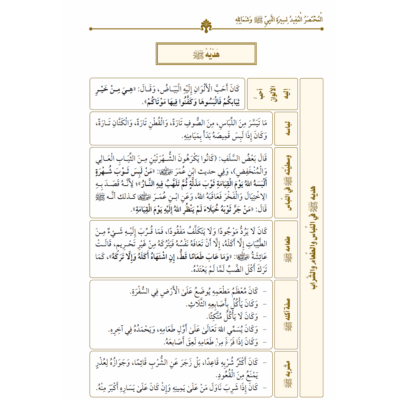 المُخْتَصَرُ المُفِيدُ لِسِيرَةِ النَّبِيِّ ﷺ وَشَمَائِلِهِ
هَدْيُهُ ﷺ
هديه ﷺ في اللباس والطعام والشراب
أحب الألوان إليه
كَانَ أَحَبُّ الأَلْوَانِ إِلَيْهِ البَيَاضُ، وَقَالَ: «هِيَ مِنْ خَيْرِ
ثِيَابِكُمْ فَالْبَسُوهَا وَكَفِّنُوا فِيهَا مَوْتَاكُمْ».
لباسه ﷺ
مَا تَيَسَّرَ مِنَ اللِّبَاسِ، مِنَ الصُّوفِ تَارَةً، وَالقُطْنِ تَارَةً، وَالكَتَّانِ تَارَةً،
وَكَانَ إِذَا لَبِسَ قَمِيصَهُ بَدَأَ بِمَيَامِنِهِ.
وسطيته ﷺ في اللباس
قَالَ بَعْضُ السَّلَفِ: «كَانُوا يَكْرَهُونَ الشُّهْرَتَيْنِ مِنَ الثِّيَابِ العَالِي
وَالمُنْخَفِضِ»، وَفِي حديث ابْنِ عُمَرَ: «مَنْ لَبِسَ ثَوْبَ شُهْرَةٍ
أَلْبَسَهُ اللهُ يَوْمَ القِيَامَةِ ثَوْبَ مَذَلَّةٍ ثُمَّ تَلَهَّبُ فِيهِ النَّارُ»؛ لِأَنَّهُ قَصَدَ بِهِ
الاخْتِيَالَ وَالفَخْرَ فَعَاقَبَهُ اللهُ، وَعَنِ ابْنِ عُمَرَ كذلك أنه ﷺ
قَالَ: «مَنْ جَرَّ ثَوْبَهُ خُيَلَاءَ لَمْ يَنْظُرِ اللهُ إِلَيْهِ يَوْمَ القِيَامَةِ».
طعامه ﷺ
كَانَ لَا يَرُدُّ مَوْجُودًا وَلَا يَتَكَلَّفُ مَفْقُودًا، فَمَا قُرِّبَ إِلَيْهِ شَيْءٌ مِنَ
الطَّيِّبَاتِ إِلَّا أَكَلَهُ، إِلَّا أَنْ تَعَافَهُ نَفْسُهُ فَيَتْرُكَهُ مِنْ غَيْرِ تَحْرِيمٍ، قَالَتْ
عَائِشَةُ: «وَمَا عَابَ طَعَامًا قَطُّ، إِنِ اشْتَهَاهُ أَكَلَهُ وَإِلَّا تَرَكَهُ»، كَمَا
تَرَكَ أَكْلَ الضَّبِّ لَمَّا لَمْ يَعْتَدْهُ.
صفة أكله ﷺ
- كَانَ مُعْظَمُ مَطْعَمِهِ يُوضَعُ عَلَى الأَرْضِ فِي السُّفْرَةِ.
- وَكَانَ يَأْكُلُ بِأَصَابِعِهِ الثَّلَاثِ.
- وَكَانَ لَا يَأْكُلُ مُتَّكِئًا.
- وَكَانَ يُسَمِّي اللهَ تَعَالَى عَلَى أَوَّلِ طَعَامِهِ، وَيَحْمَدُهُ فِي آخِرِهِ.
- وَكَانَ إِذَا فَرَغَ مِنْ طَعَامِهِ لَعِقَ أَصَابِعَهُ.
مشربه ﷺ
- كَانَ أَكْثَرُ شُرْبِهِ قَاعِدًا، بَلْ زَجَرَ عَنِ الشُّرْبِ قَائِمًا، وَجَوَازُهُ لِعُذْرٍ
يَمْنَعُ مِنَ القُعُودِ.
- كَانَ إِذَا شَرِبَ نَاوَلَ مَنْ عَلَى يَمِينِهِ وَإِنْ كَانَ عَلَى يَسَارِهِ أَكْبَرُ مِنْهُ.